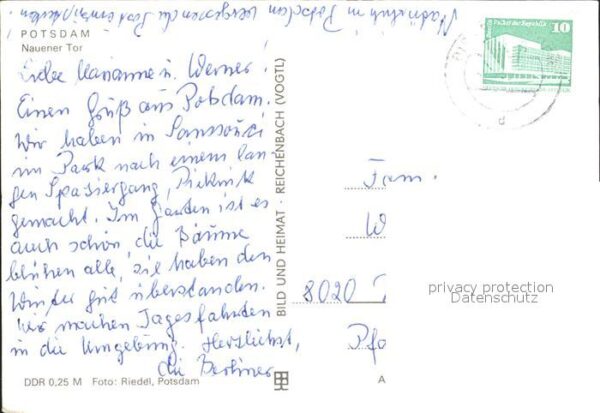 Natürlich in Potsdam vergessen die Post einzuwerfen.
POTSDAM
Nauener Tor
Liebe Marianne u. Werner!
Einen Gruß aus Potsdam.
Wir haben in Sanssouci
im Park nach einem lan
gen Spaziergang, Picknick
gemacht. Im Garten ist es
auch schön die Bäume
blühen alle, sie haben den
Winter gut überstanden.
Wir machen Tagesfahrten
in die Umgebung. Herzlichst,
die Berliner
DDR 0,25 M Foto: Riedel, Potsdam
BILD UND HEIMAT REICHENBACH (VOGTL)
Palast der Republik
10
DDR
d
Fam.
W
8020
Pfo
A
privacy protection
Datenschutz